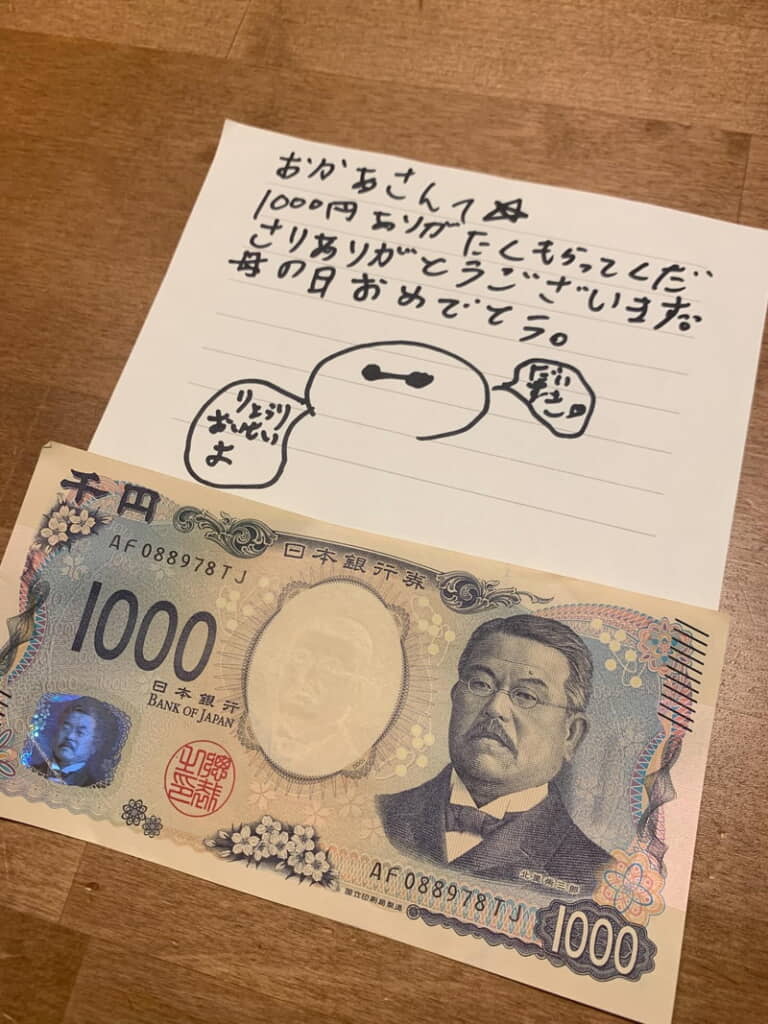 おかあさんへ☆
1000円ありがたくもらってくだ
さりありがとうございます。
母の日おめでとう。
だい
すき。
りょうり
おいしい
よ
千円
AF088978TJ
日本銀行券
1000
日本銀行
BANK OF JAPAN
北里柴三郎
AF088978TJ
国立印刷局製造
1000